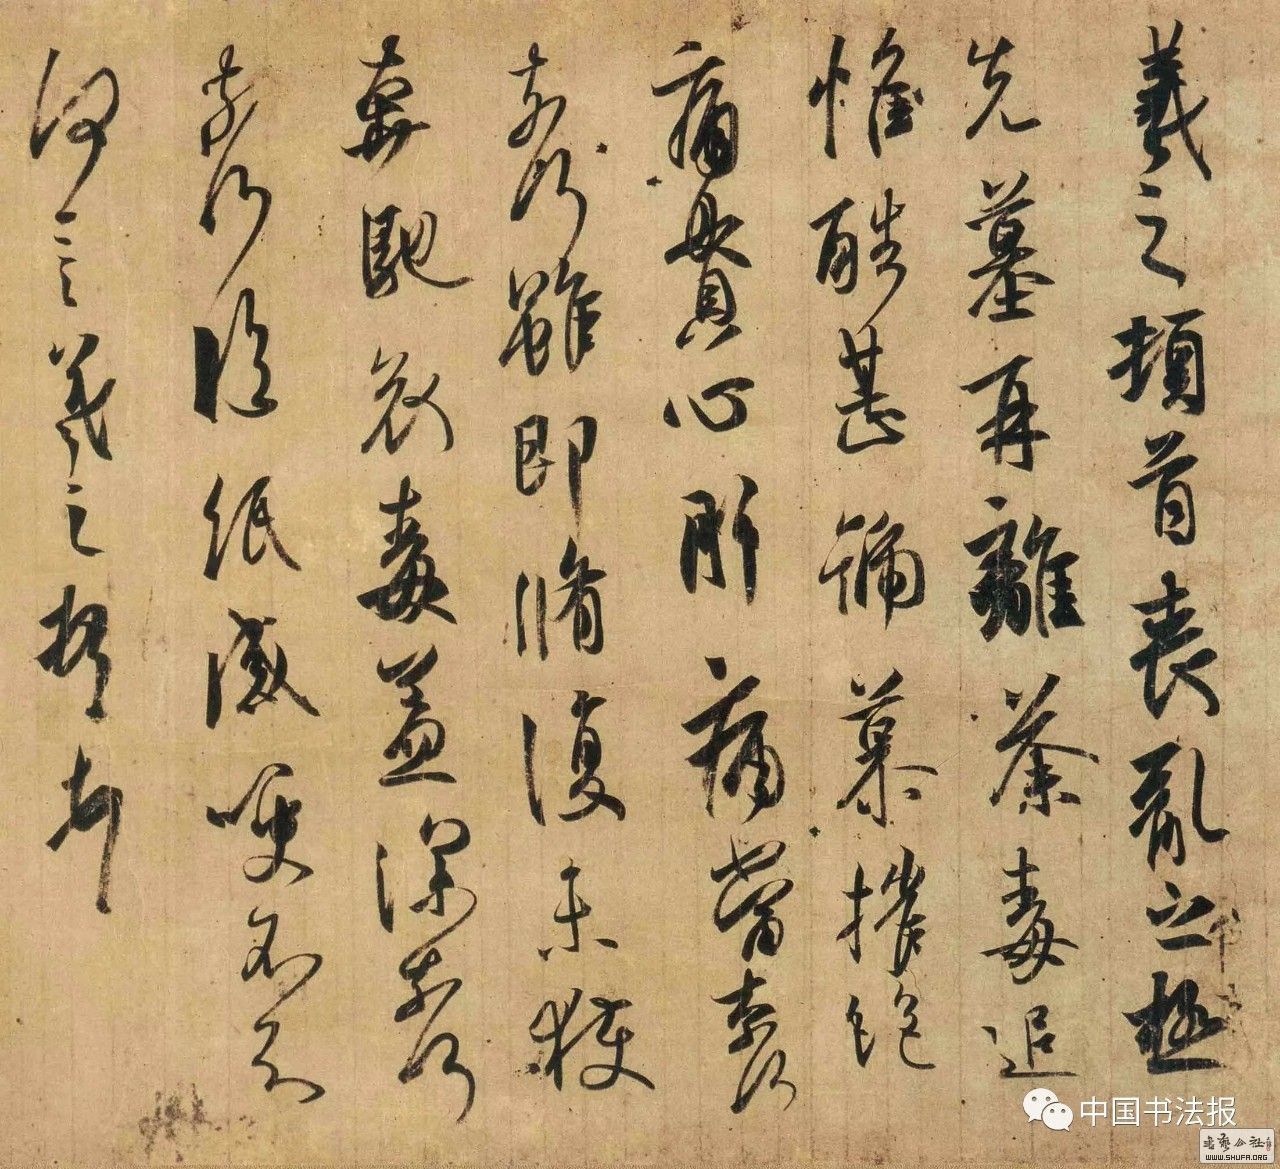 羲之頓首喪亂之極
先墓再離荼毒追
惟酷甚號慕摧絕
痛貫心肝痛當奈何
奈何雖即脩復未獲
奔馳哀毒益深奈何
奈何臨紙感哽不知
何言羲之頓首頓首
中国书法报
WWW.SHUFA.ORG